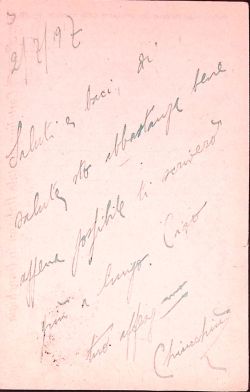 2/7/97
Saluti e baci, di
salute sto abbastanza bene
appena possibile ti scriverò
più a lungo. Ciao
tuo affez mo